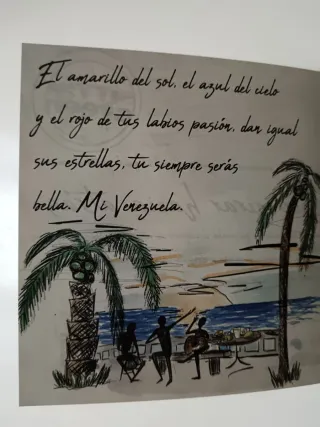 El amarillo del sol, el azul del cielo
y el rojo de tus labios pasión, dan igual
sus estrellas, tu siempre serás
bella. Mi Venezuela.